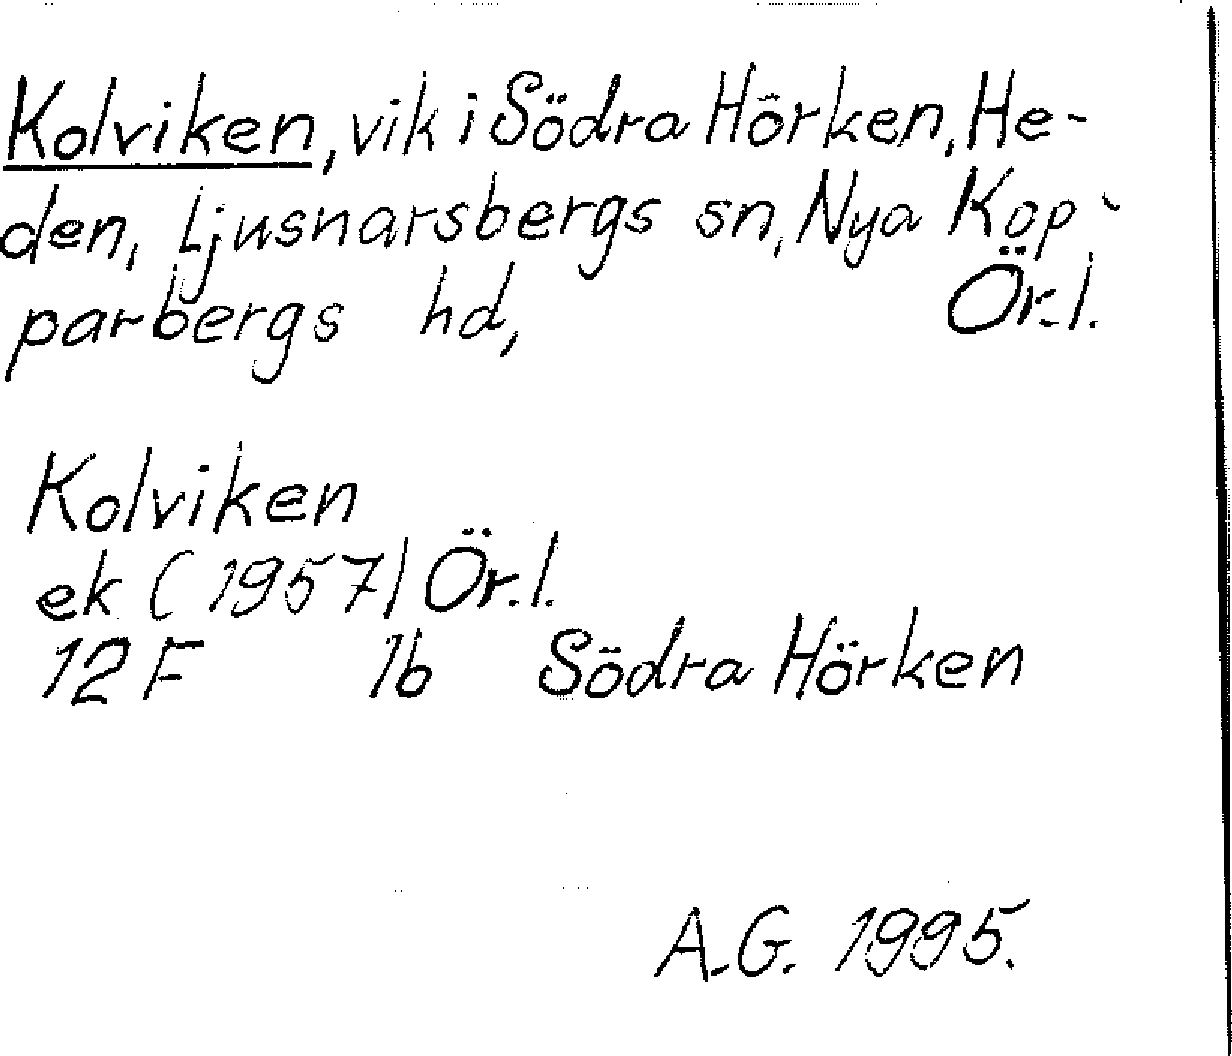 Kolviken, vik i Södra Hörken, He-
den, Ljusnarsbergs sn, Nya Kop-
parbergs hd, Ör.l.
Kolviken
ek (1957) Ör.l.
12F 1b Södra Hörken
A.G. 1995.